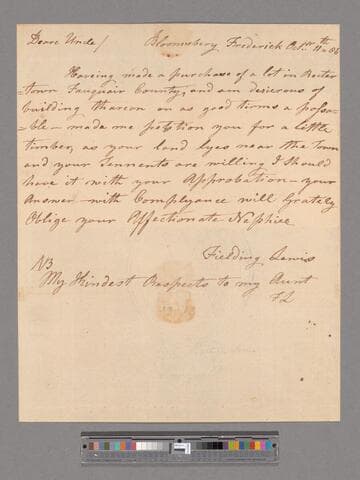 Deare Uncle/ Bloomsbery Frederick Octr 11th 86
Haveing made a purchase of a lot in Rector
-town Fauquair County, and am desierous of
building thareon on as good terms a possa-
=ble - made me petition you for a little
timber, as your land lyes near the town
and your Tennents are willing I should
have it with your Approbation - your
Answer with Complyance will Grately
Oblige your Affectionate Nephiee
Fielding Lewis
NB
My Kindest Respects to my Aunt
FL